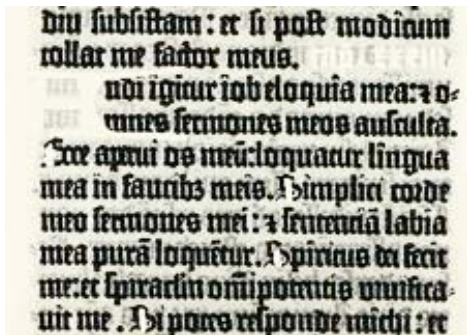 diu subsistam: et si post modicum
tollat me factor meus.
udi igitur iob eloquia mea: ⁊ o-
mnes sermones meos ausculta.
Ecce aperui os meū: loquatur lingua
mea in faucibꝫ meis. Simplici corde
meo sermones mei: ⁊ sententiā labia
mea purā loquētur. Spiritus dei fecit
me: et spiraclm om̄ipotentis vivifica-
vit me. Si potes responde michi: et